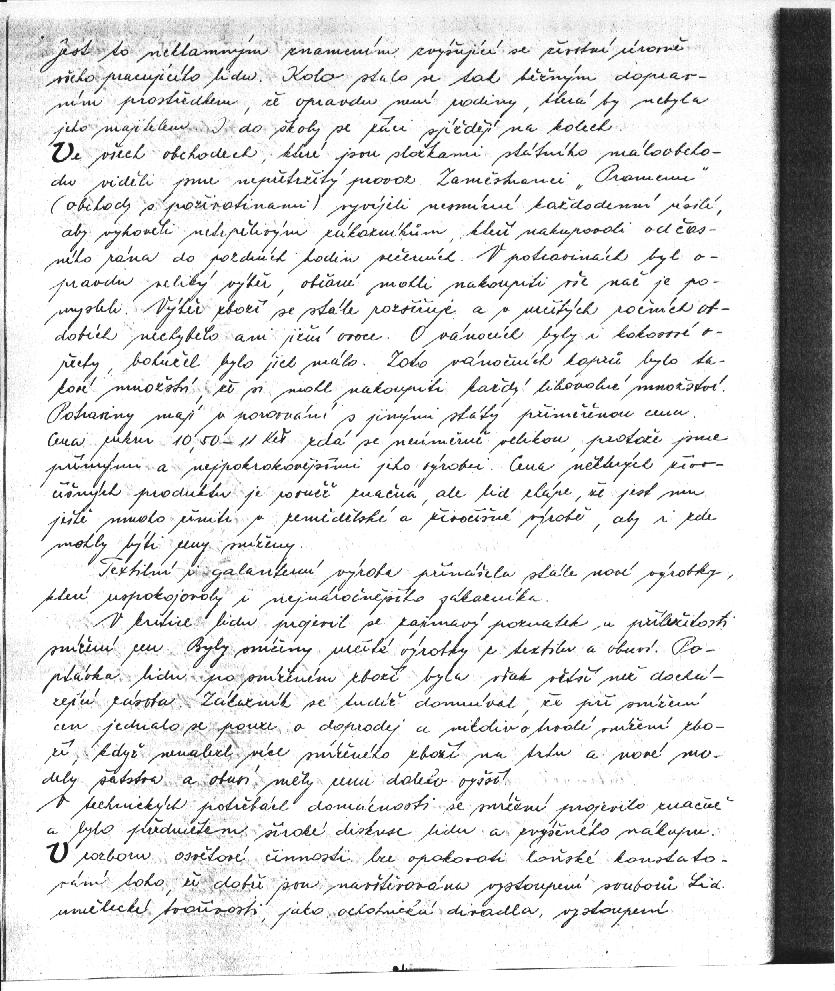 Jest to neklamným znamením zvyšující se životní úrovně
všeho pracujícího lidu. Kolo stalo se tak běžným doprav-
ním prostředkem, že opravdu není rodiny, která by nebyla
jeho majitelem I do školy se žáci sjíždějí na kolech
Ve všech obchodech, které jsou složkami státního maloobcho-
du viděli jsme nepřetržitý provoz Zaměstnanci „Pramenu"
(obchody s poživatinami) vyvíjeli nesmírné každodenní úsilí,
aby vyhověli netrpělivým zákazníkům, kteří nakupovali od čas-
ného rána do pozdních hodin večerních. V potravinách byl o-
pravdu veliký výběr, občané mohli nakoupiti vše nač je po-
mysleli. Výběr zboží se stále rozšiřuje a v určitých ročních ob-
dobích nechybělo ani jižní ovoce. O vánocích byly i kokosové o-
řechy, bohužel bylo jich málo. Zato vánočních kaprů bylo ta-
kové množství, že si mohl nakoupiti každý libovolné množství.
Potraviny mají v porovnání s jinými státy přiměřenou cenu.
Cena cukru 10,50 – 11 Kčs zdá se neúměrně velikou, protože jsme
prvními a nejpokrokovějšími jeho výrobci. Cena některých živo-
čišných produktů je rovněž značná, ale lid chápe, že jest nu
ještě mnoho činiti v zemědělské a živočišné výrobě, aby i zde
mohly býti ceny sníženy.
Textilní i galanterní výroba přinášela stále nové výrobky,
které uspokojovaly i nejnáročnějšího zákazníka.
V kritice lidu projevil se zajímavý poznatek u příležitosti
snížení cen. Byly sníženy určité výrobky z textilu a obuvi. Po-
ptávka lidu po sníženém zboží byla však větší než dochá-
zející zásoba. Zákazník se tudíž domníval, že při snížení
cen jednalo se pouze o doprodej a nikoliv o trvalé snížení zbo-
ží, když nenalezl více sníženého zboží na trhu a nové mo-
dely šatstva a obuvi měly cenu daleko vyšší.
V technických potřebách domácnosti se snížení projevilo značně
a bylo předmětem široké diskuse lidu a zvýšeného nákupu.
V rozboru osvětové činnosti lze opakovati loňské konstato-
vání toho, že dobře jsou navštěvována vystoupení souborů Lid.
umělecké tvořivosti, jako ochotnická divadla, vystoupení